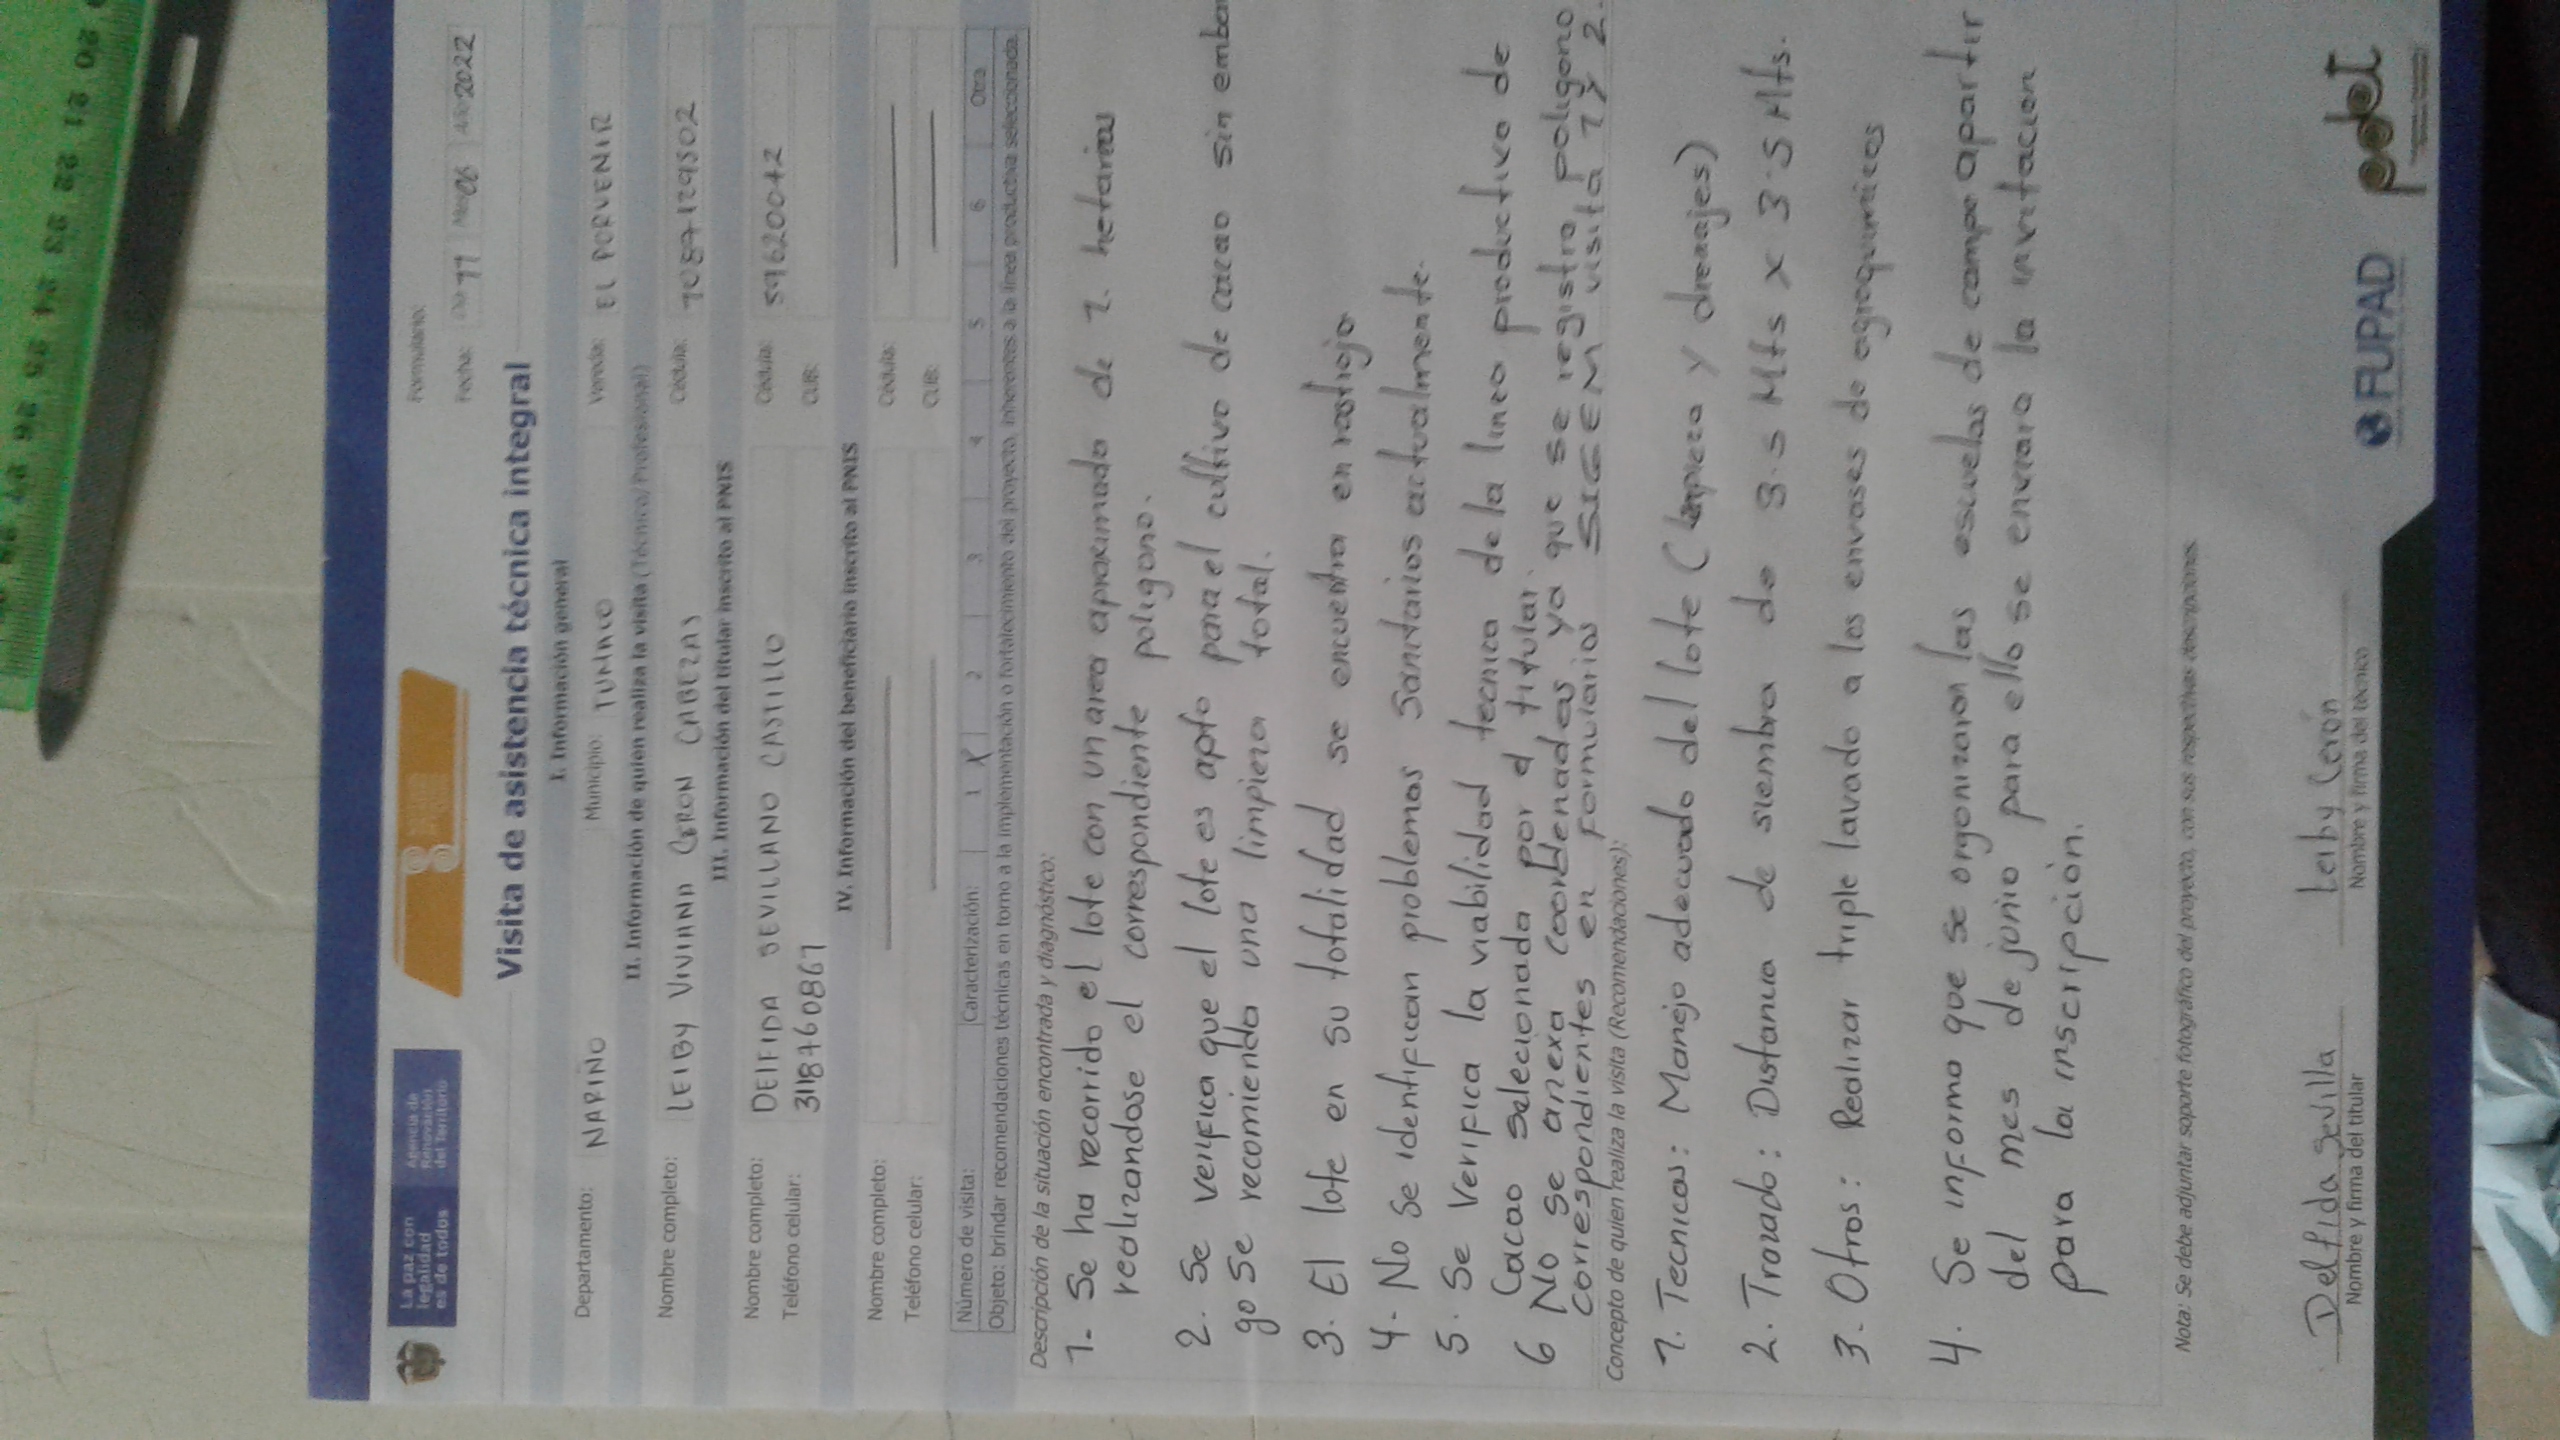 La paz con legalidad es de todos
Agencia de Renovación del Territorio
Formulario:
Visita de asistencia técnica integral
Fecha: Día 11 Mes 06 Año 2022
I. Información general
Departamento: NARIÑO Municipio: TUMACO Vereda: EL PORVENIR
II. Información de quien realiza la visita (Técnico/Profesional)
Nombre completo: LEIBY VIVIANA CERON CABEZAS Cédula: 1087129502
III. Información del titular inscrito al PNIS
Nombre completo: DELFIDA SEVILLANO CASTILLO Cédula: 59620042
Teléfono celular: 3187460867 CUB:
IV. Información del beneficiario inscrito al PNIS
Nombre completo: Cédula:
Teléfono celular: CUB:
Número de visita: Caracterización: 1 X 2 3 4 5 6 Otra
Objeto: brindar recomendaciones técnicas en torno a la implementación o fortalecimiento del proyecto, inherentes a la línea productiva seleccionada.
Descripción de la situación encontrada y diagnóstico:
1- Se ha recorrido el lote con un area aproximado de 1. hetarias
realizandose el correspondiente poligono.
2. Se verifica que el lote es apto para el cultivo de cacao sin embar
go se recomienda una limpieza total.
3. El lote en su totalidad se encuentra en rastrojo
4- No se identifican problemas Sanitarios actualmente.
5. Se Verifica la viabilidad tecnica de la linea productivo de
Cacao Selecionada por el titular.
6 No se anexa coordenadas ya que se registra poligono
correspondientes en formularios SIGEM visita 1 y 2.
Concepto de quien realiza la visita (Recomendaciones):
1. Tecnicas: Manejo adecuado del lote (limpieza y drenajes)
2. Trazado: Distancia de siembra de 3.5 Mts x 3.5 Mts.
3. Otros: Realizar triple lavado a los envases de agroquimicos
4. Se informo que se organizaron las escuelas de campo apartir
del mes de junio para ello se enviara la invitacion
para la inscripción.
Nota: Se debe adjuntar soporte fotográfico del proyecto, con sus respectivas descripciones.
Delfida Sevilla Leiby Cerón
Nombre y firma del titular Nombre y firma del técnico
FUPAD
pdet